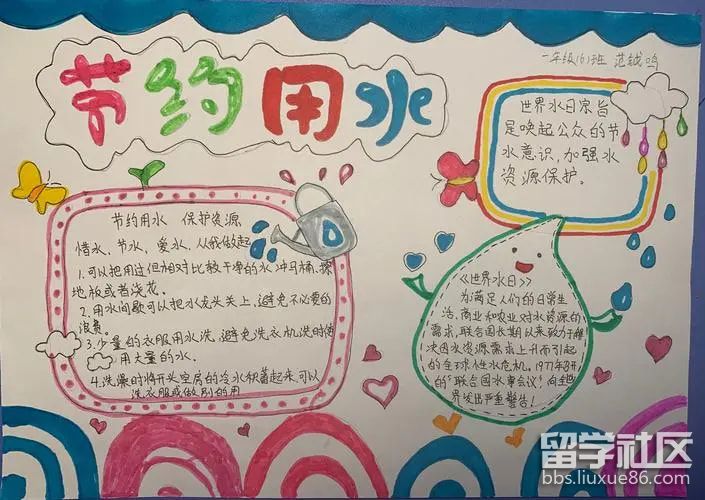 节约用水
一年级(6)班 范钺鸣
世界水日宗旨
是唤起公众的节
水意识,加强水
资源保护。
节约用水 保护资源
惜水、节水、爱水,从我做起
1.可以把用过但相对比较干净的水冲马桶、擦
地板或者浇花。
2.用水间歇可以把水龙头关上,避免不必要的
浪费。
3.少量的衣服用水洗,避免洗衣机洗时使
用大量的水。
4.洗澡时将开头空房的冷水积蓄起来,可以
洗衣服或做别的用
《世界水日》
为满足人们的日常生
活、商业和农业对水资源的
需求,联合国长期以来致力于解
决因水资源需求上升而引起
的全球性水危机。1977年召开
的“联合国水事会议”向全世
界发出严重警告!
留学社区
bbs.liuxue86.com